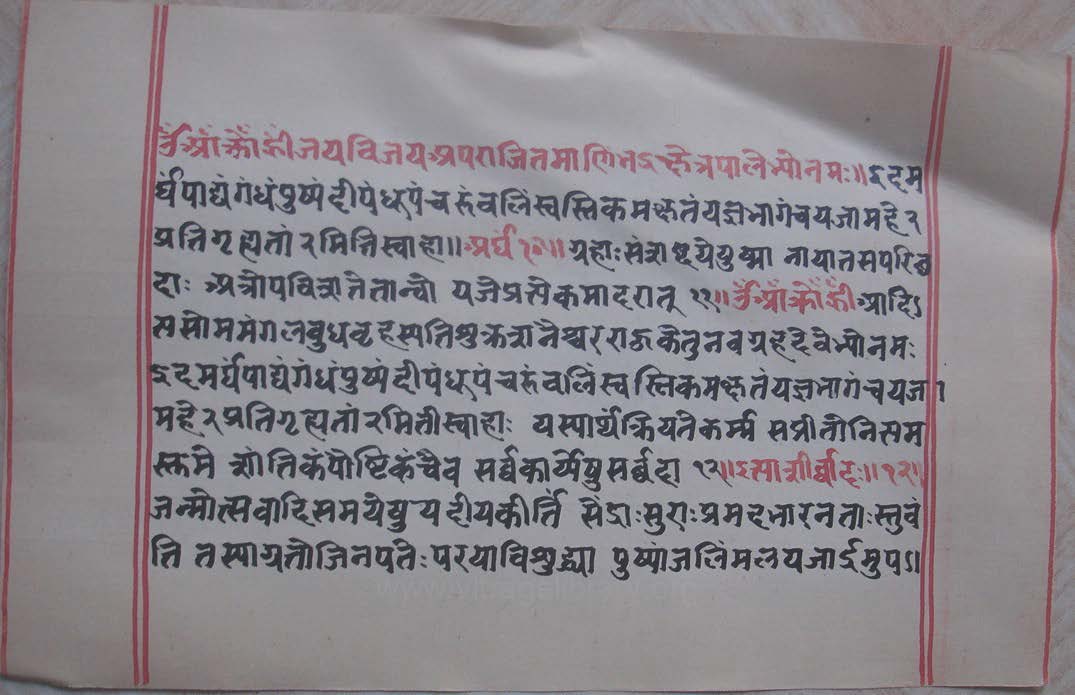 ॐआंक्रोंह्रीं जयविजयअपराजितमाणिभद्रक्षेत्रपालेभ्योनमः॥ इदम
र्घंपाद्यंगंधंपुष्पंदीपंधूपंचरुंवलिंस्वस्तिकमक्षतंयज्ञभागंचयजामहे २
प्रतिगृह्यतां २ मितिस्वाहा॥ अर्घं ग्रहाः संशब्दयेयुष्मा नायातसपरिछ
दाः अत्रोपविशतैतान्वो यजेप्रत्येकमादरात् ११॥ ॐआंक्रोंह्रीं आदि
त्यसोममंगलबुधवृहस्पतिशुक्रशनैश्चरराहुकेतुनवग्रहदेवेभ्योनमः
इदमर्घंपाद्यंगंधंपुष्पंदीपंधूपंचरुंवलिंस्वस्तिकमक्षतंयज्ञभागंचयजा
महे २ प्रतिगृह्यतां २ मितीस्वाहाः यस्यार्थंक्रियतेकर्म्म सप्रीतोनित्यम
स्तुमे शांतिकंपौष्टिकंचैव सर्व्वकार्येषुसर्व्वदा १२॥ इत्याशीर्व्वादः॥ १२॥
जन्मोत्सवादिसमयेषुयदीयकीर्त्तिं सेंद्राःसुराःप्रमदभारनताःस्तुवं
ति तस्याग्रतोजिनपतेःपरयाविशुद्ध्या पुष्पांजलिंमलयजार्द्रमुपा